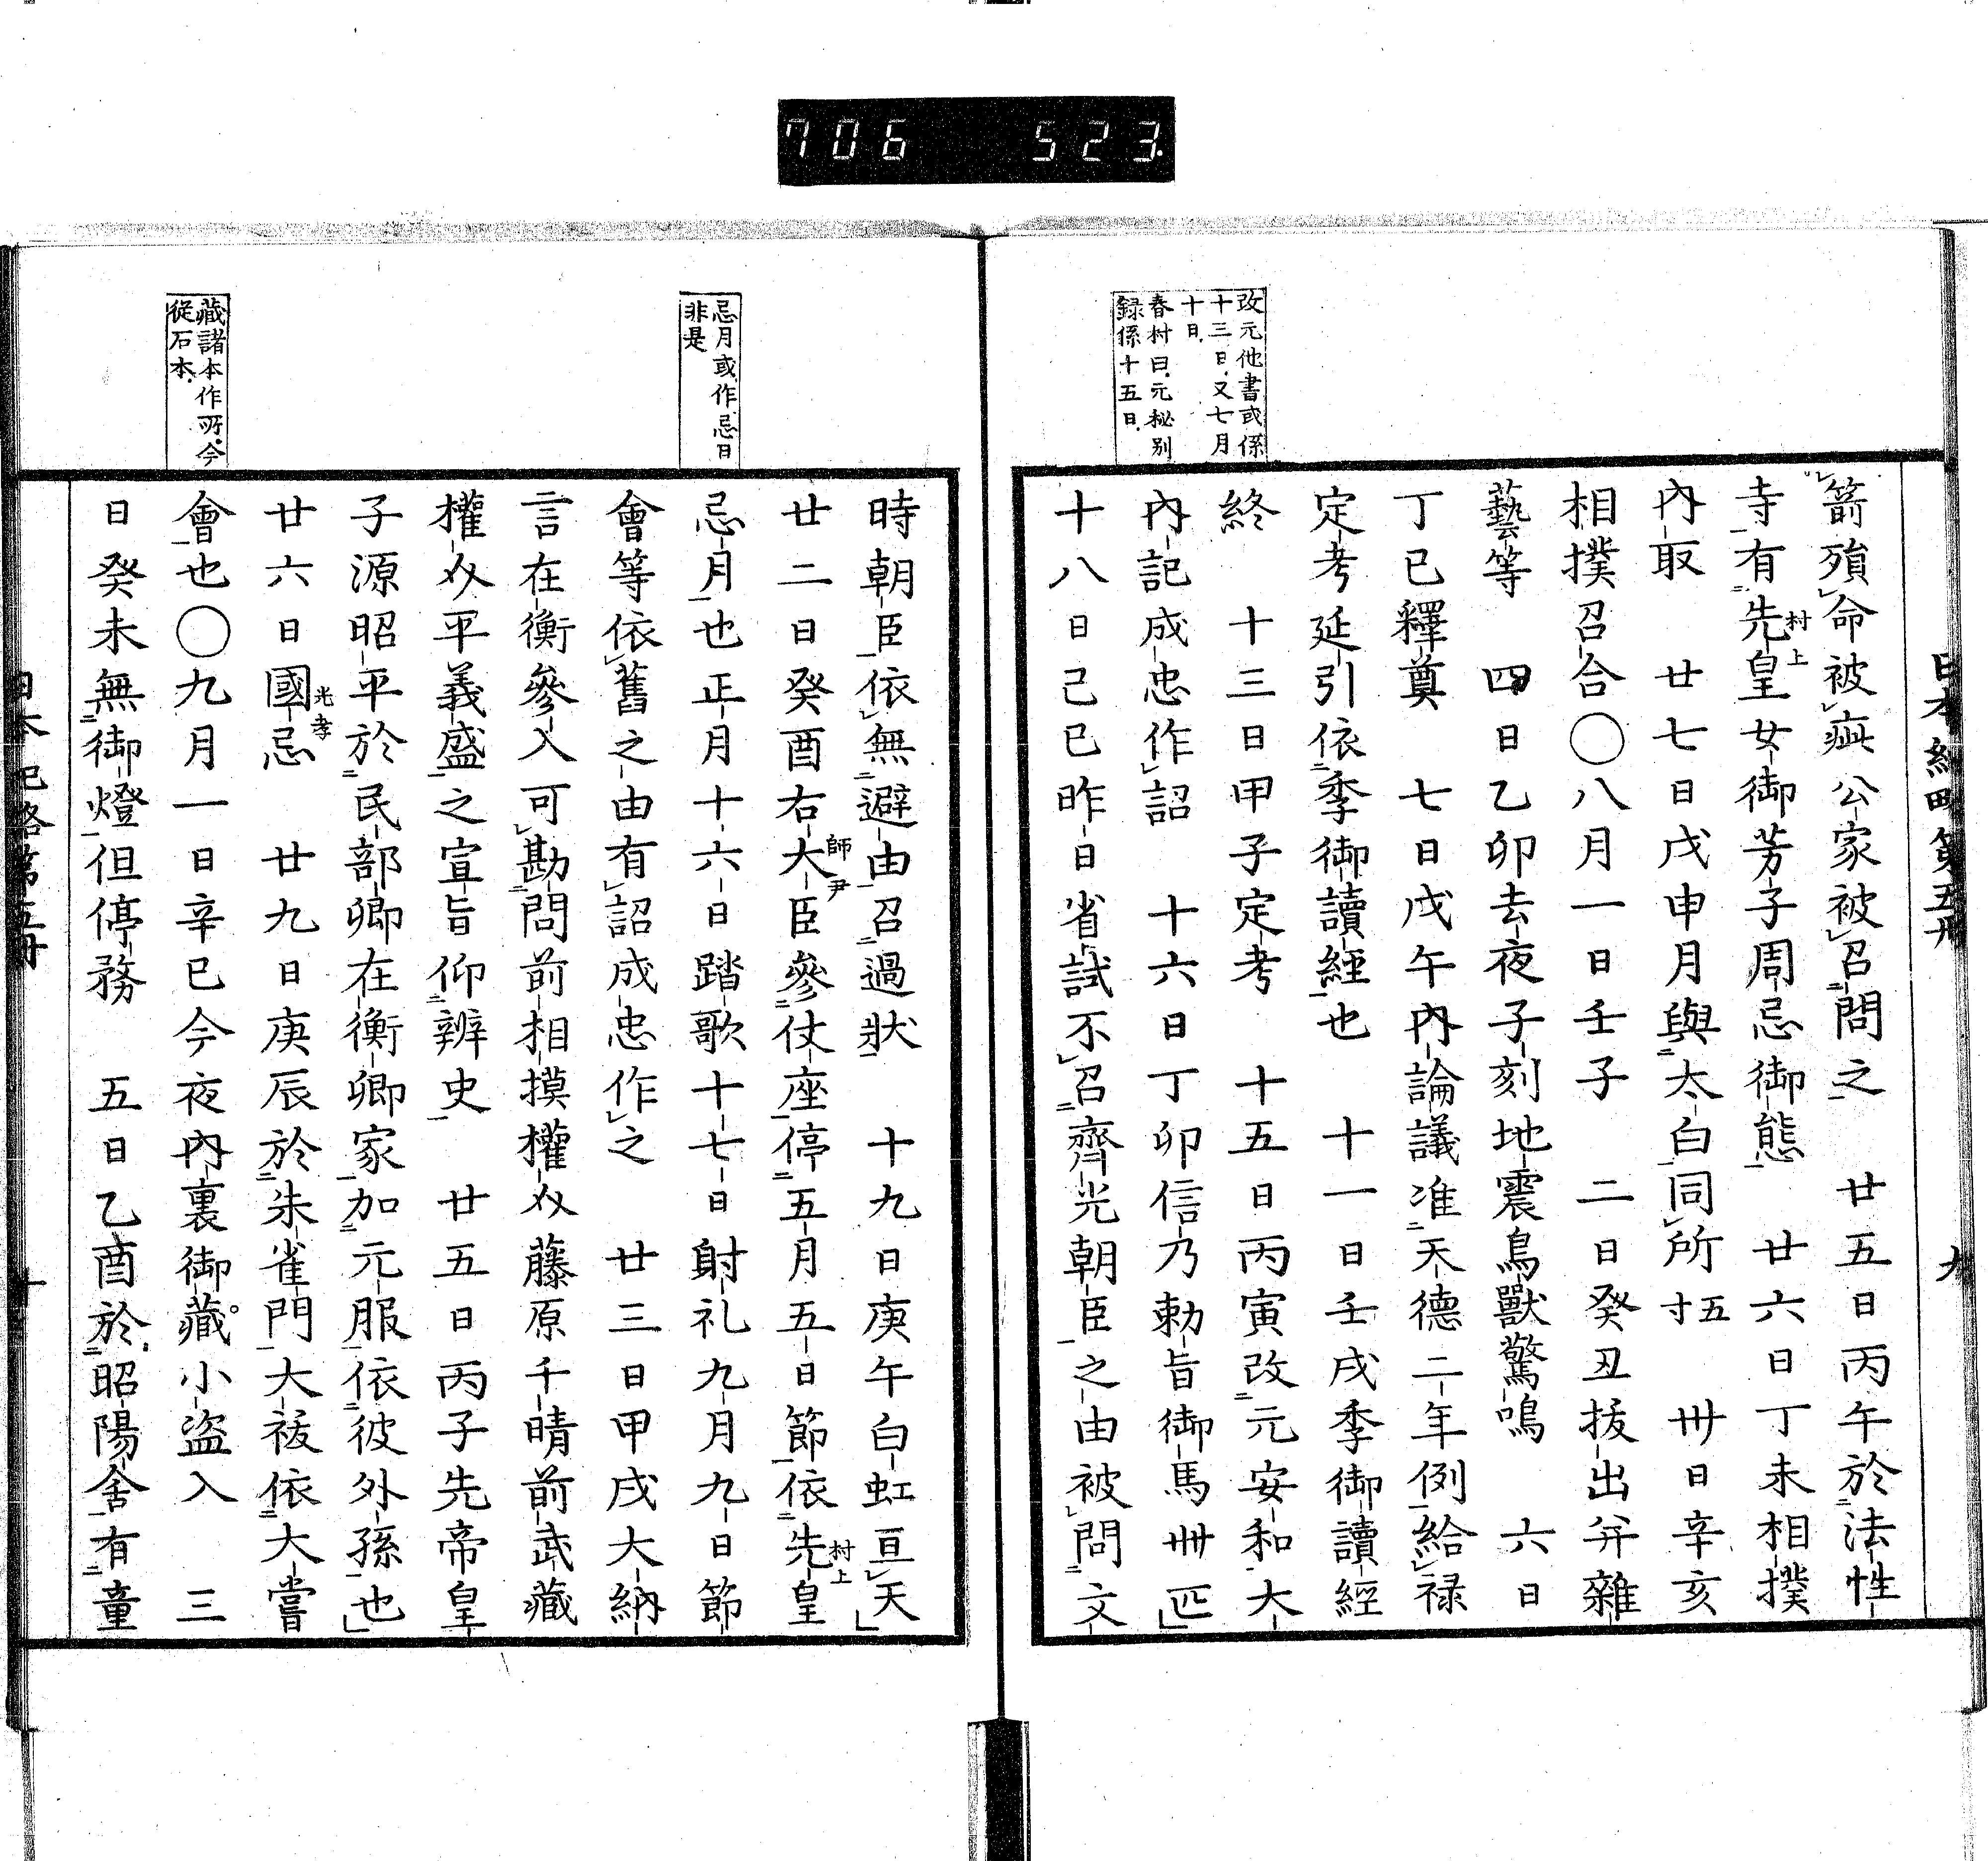 706 523
改元他書或係
十三日、又七月
十日、
春村曰、元秘別
録係十五日、
日本紀畧第五册 九
箭殞命被疵公家被召問之 廿五日丙午於法性
寺有先皇女御芳子周忌御態 廿六日丁未相撲
村上
內取 廿七日戊申月與太白同所五寸 卅日辛亥
相撲召合〇八月一日壬子 二日癸丑拔出并雜
藝等 四日乙卯去夜子刻地震鳥獸驚鳴 六日
丁巳釋奠 七日戊午內論議准天德二年例給祿
定考延引依季御讀經也 十一日壬戌季御讀經
終 十三日甲子定考 十五日丙寅改元安和大
內記成忠作詔 十六日丁卯信乃勅旨御馬卅疋
十八日己巳昨日省試不召齊光朝臣之由被問文
忌月或作忌日
非是
藏諸本作所、今
從石本、
時朝臣依無避由召過狀 十九日庚午白虹亘天
廿二日癸酉右大臣參仗座停五月五日節依先皇
師尹
村上
忌月也正月十六日踏歌十七日射礼九月九日節
會等依舊之由有詔成忠作之 廿三日甲戌大納
言在衡參入可勘問前相摸權介藤原千晴前武藏
權介平義盛之宣旨仰辨史 廿五日丙子先帝皇
子源昭平於民部卿在衡卿家加元服依彼外孫也
廿六日國忌 廿九日庚辰於朱雀門大祓依大嘗
光孝
會也〇九月一日辛巳今夜內裏御藏小盜入 三
日癸未無御燈但停務 五日乙酉於昭陽舍有童
日本紀略第五册 十